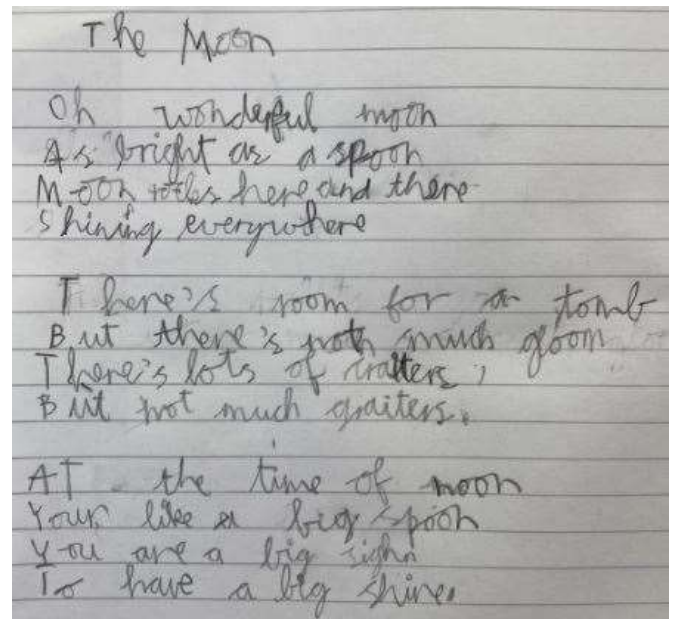 The Moon
Oh wonderful moon
As bright as a spoon
Moon here and there
Shining everywhere
There's room for a tomb
But there's not much gloom
There's lots of craters,
But not much graiters.
AT the time of noon
Your like a big spoon
You are a big sighn
To have a big shine.